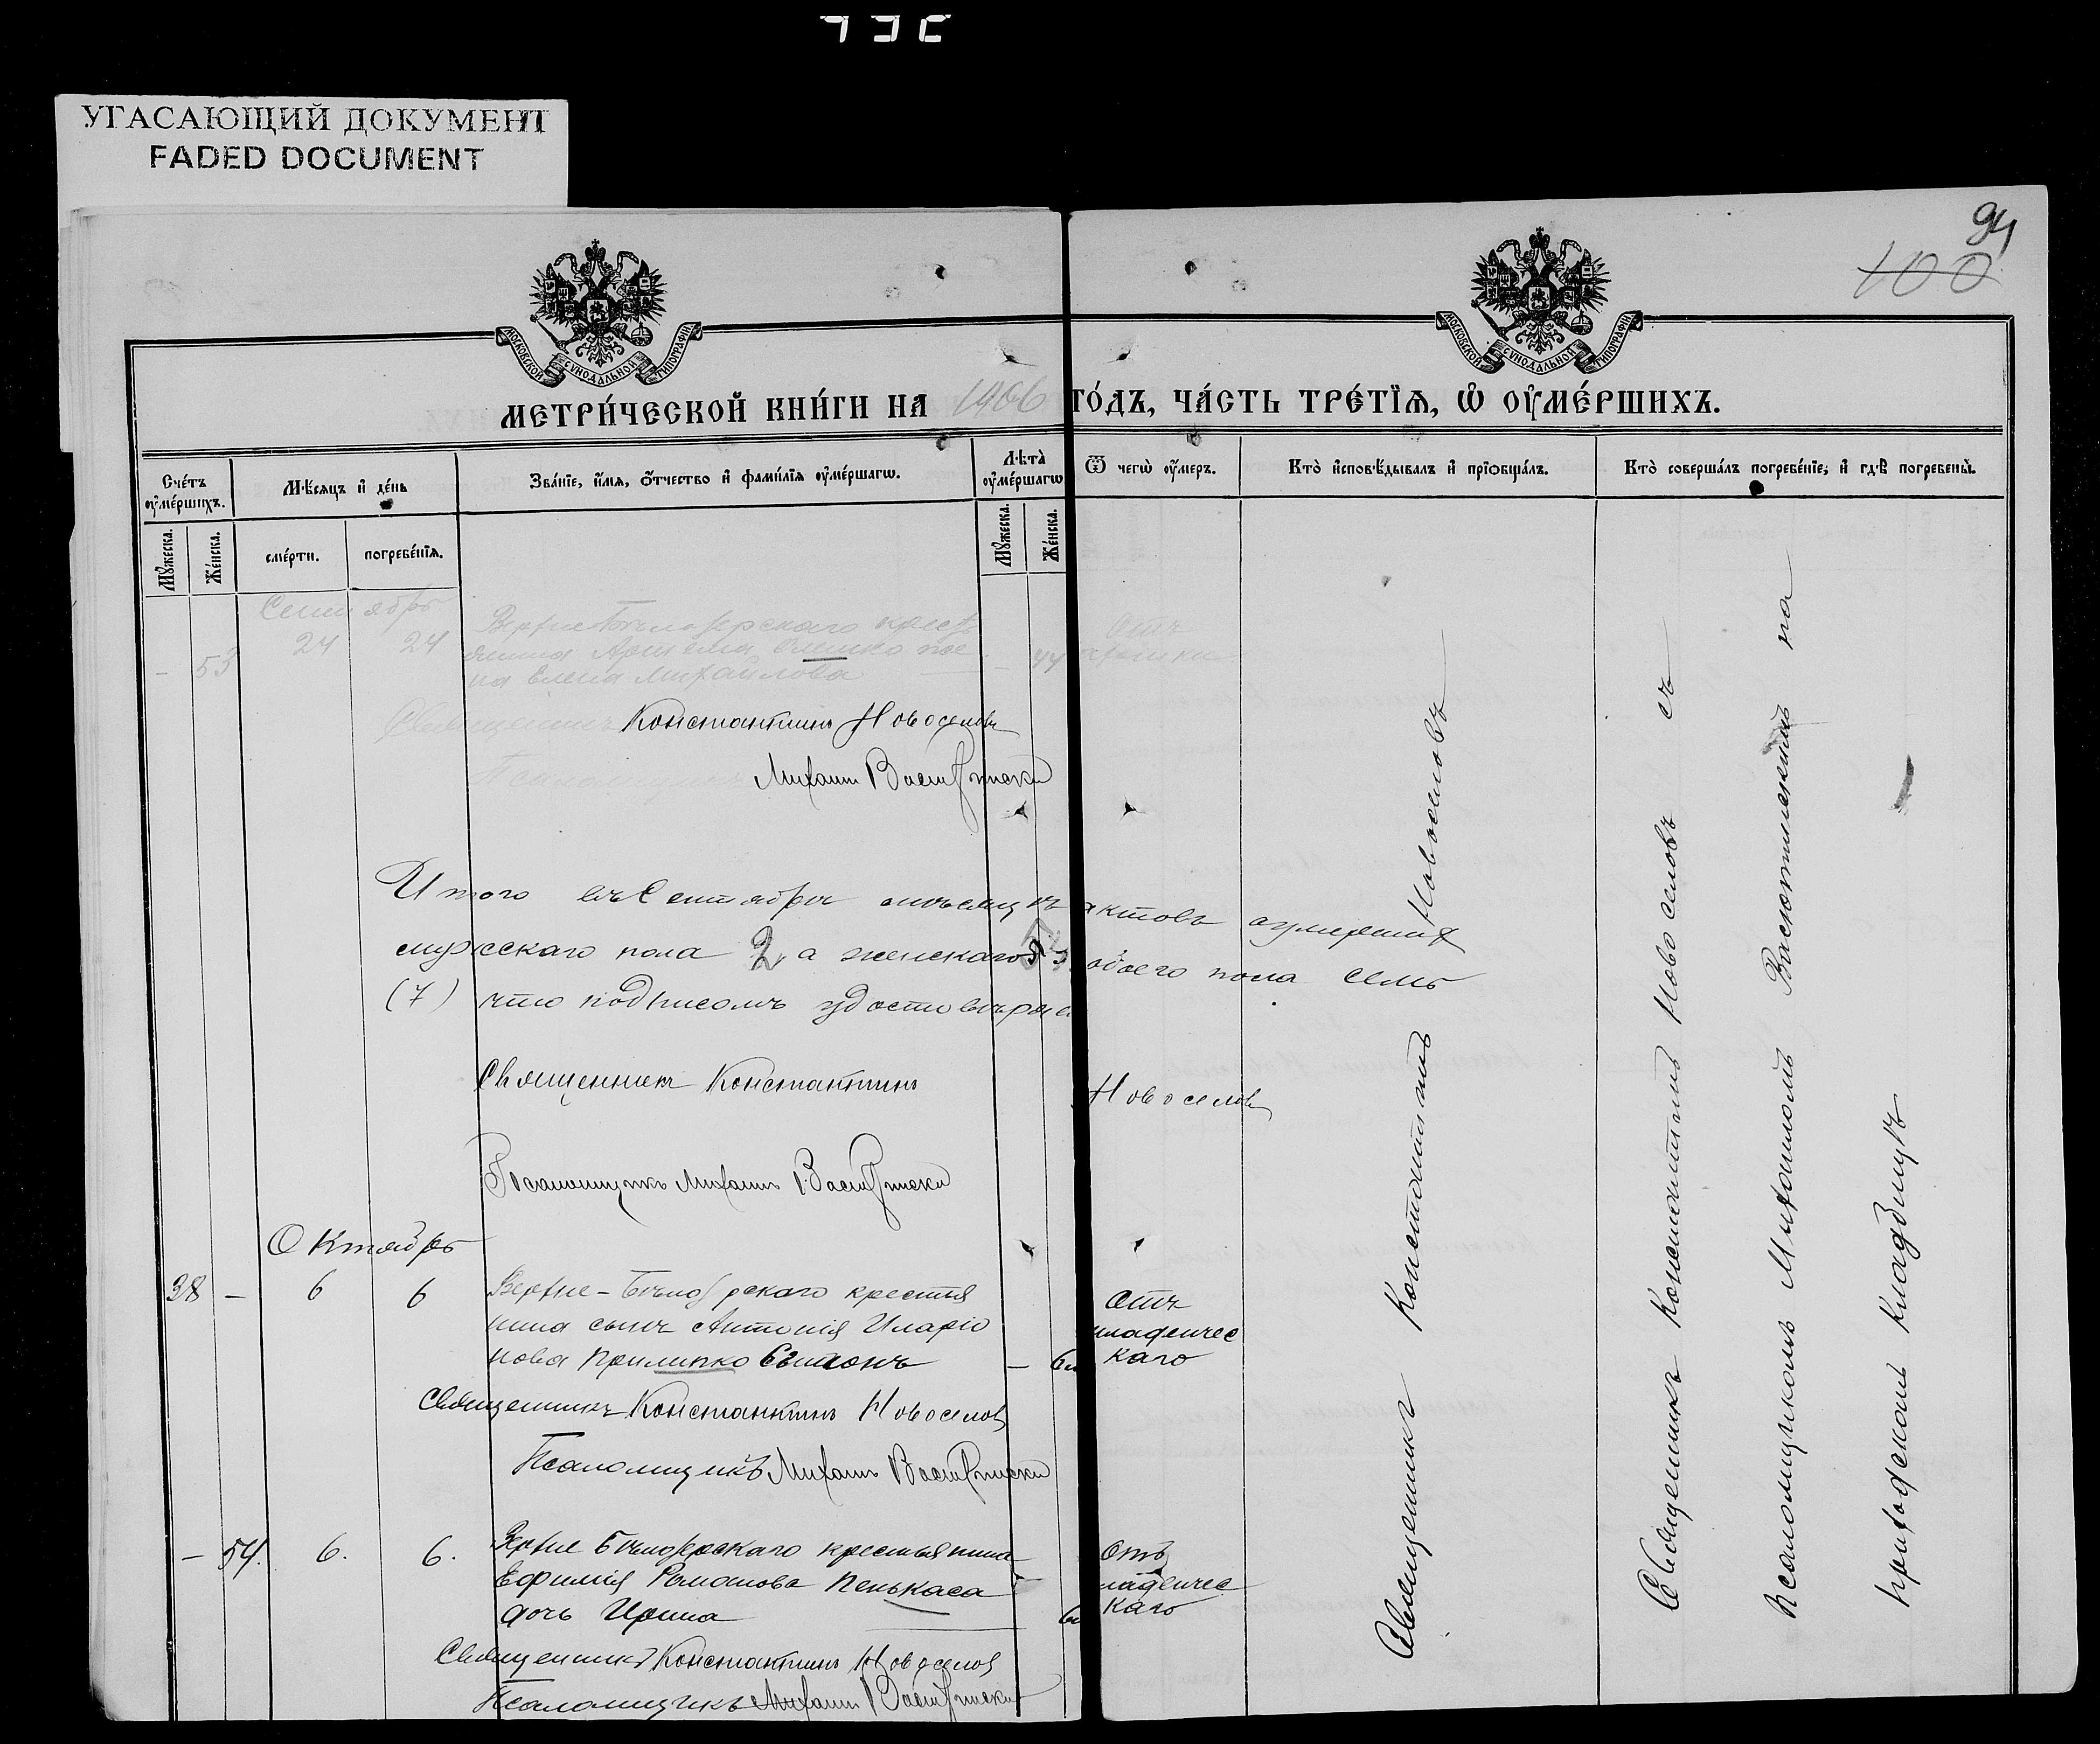 УГАСАЮЩИЙ ДОКУМЕНТ
FADED DOCUMENT
94
100
МОСКОВСКОЙ СѴНОДАЛЬНОЙ ТИПОГРАФІИ
МОСКОВСКОЙ СѴНОДАЛЬНОЙ ТИПОГРАФІИ
МЕТРИ́ЧЕСКОЙ КНИ́ГИ НА 1906 ГО́ДЪ, ЧА́СТЬ ТРЕ́ТІѦ, Ѡ҆ ОУ҆МЕ́РШИХЪ.
Сче́тъ оу҆ме́ршихъ.
Мꙋжеска.
Же́нска.
М́ѣсяцъ и҆ де́нь
сме́рти.
погребе́нїѧ.
Зва́нїе, и҆́мѧ, ѻ҆́тчество и҆ фамі́лїѧ оу҆ме́ршагѡ.
Лѣта̀ оу҆ме́ршагѡ
Мꙋжеска.
Же́нска.
Ѿ чегѡ̀ оу҆́меръ.
Кто̀ и҆сповѣ́дывалъ и҆ прїѡбща́лъ.
Кто̀ соверша́лъ погребе́нїе, и҆ гдѣ̀ погребены̀.
Сентябрь
- 53 24 24 Верхне Бѣлозерскаго кресть
янина Артема жe
на Елена Михайлова - 44
Отъ
Священникъ Константинъ Новоселовъ
Псаломщикъ Михаилъ
Итого въ Сентябрѣ мѣсяцѣ актовъ умерших
мужескаго пола 2, а женскаго 5 обоего пола семь
(7) что подписомъ удостовѣряе
Священникъ Константинъ Новоселовъ
Псаломщикъ Михаилъ
Октябрь
38 - 6 6 Верхне-Бѣлозерскаго крестья
нина сынъ Антонія Иларіо
нова Прилипко -
Отъ
младенчес
каго
Священникъ Константинъ Новоселовъ
Псаломщикъ Михаилъ
- 54. 6. 6. Верхне Бѣлозерскаго крестьянина
Ефимія Романова Пенькаса
дочь Ирина
Отъ
младенчес
каго
Священникъ Константинъ Новоселовъ
Псаломщикъ Михаилъ
Священникъ Константинъ Новоселовъ
Священникъ Константинъ Новоселовъ съ
Псаломщикомъ Михаиломъ на
приходскомъ кладбищѣ